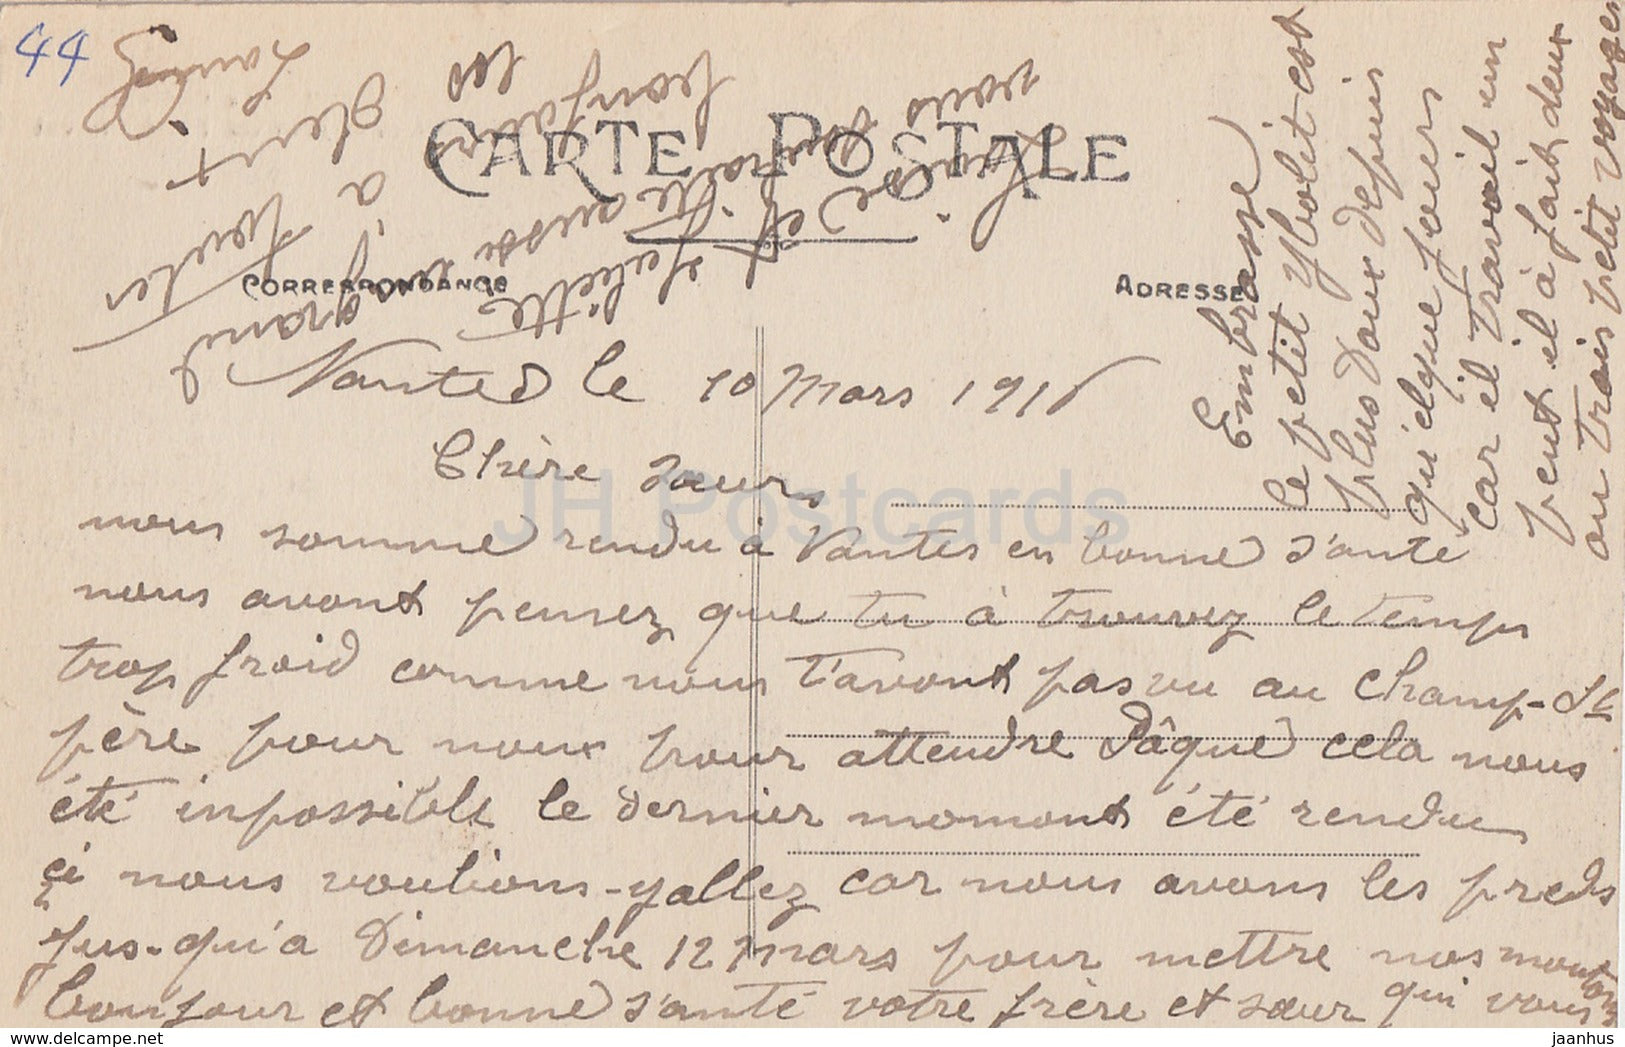 44
CARTE POSTALE
CORRESPONDANCE
ADRESSE
Nantes le 10 Mars 1916
Chère Sœurs
nous somme rendu à Nantes en bonne s'anté
nous avont pensez que tu à trouvez le temps
trop froid comme nous t'avont pas vu au Champ-St
père pour nous pour attendre Pâque cela nous
été inpossible le dernier momont été rendu
ci nous voulions-yallez car nous avons les preds
jus-qu'a Dimanche 12 mars pour mettre nos moutons
bonjour et bonne s'anté votre frère et sœur qui vous
Embrasse
le petit Ybolit est
plus Doux depuis
quielque jours
car il travail un
peut il à fait deux
ou trais petit voyages
Louise
et
Juliette
aussi
grand
à
les
vous
JH Postcards
www.delcampe.net
jaanhus